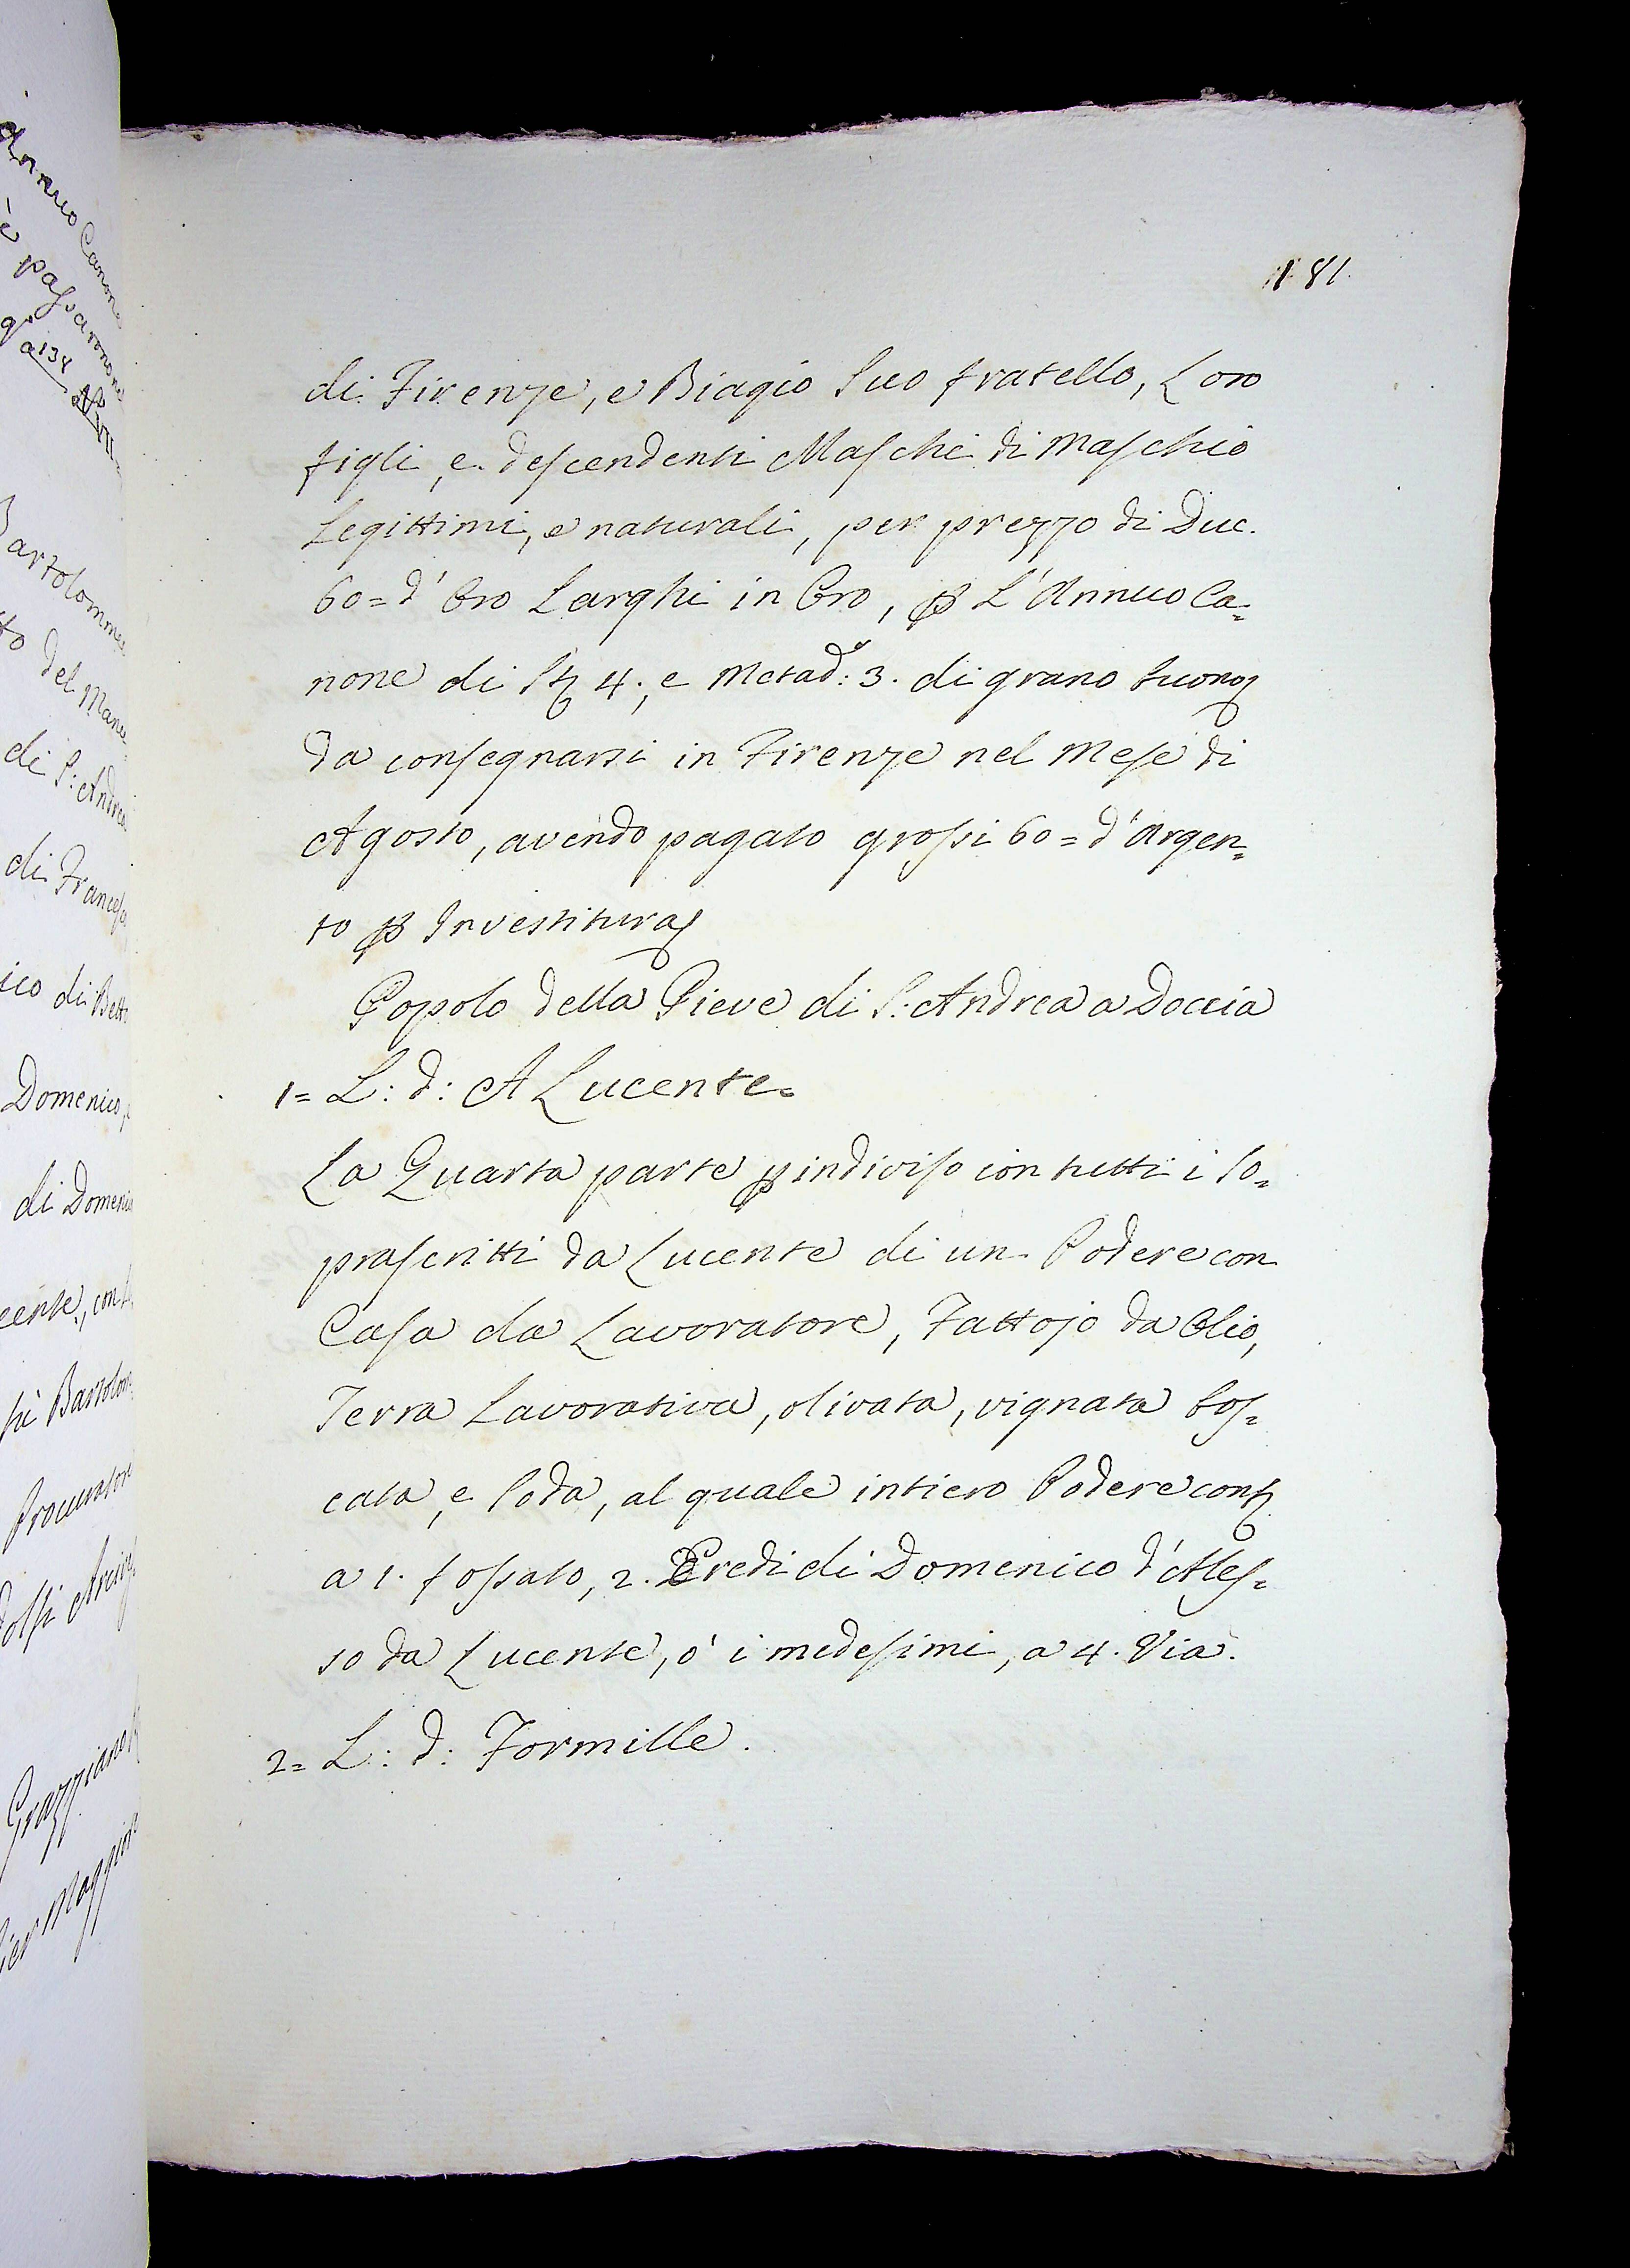 181.
di Firenze, e Biagio Suo fratello, Loro
figli, e descendenti Maschi di Maschio
Legittimi, e naturali, per prezzo di Duc.
60= d'Oro Larghi in Oro, p L'Annuo Ca=
none di St 4., e Metad: 3. di grano buono
da consegnarsi in Firenze nel Mese di
Agosto, avendo pagato grossi 60= d'Argen=
to p Investitura
Popolo della Pieve di S: Andrea a Doccia
1= L: d: A Lucente=
La Quarta parte p indiviso con tutti i So=
prascritti da Lucente di un Podere con
Casa da Lavoratore, Fattojo da Olio,
Terra Lavorativa, olivata, vignata bos=
cata, e Soda, al quale intiero Podere conf
a 1. fossato, 2. Eredi di Domenico d'Ales=
so da Lucente, ò i medesimi, a 4. Via.
2= L: d: Formille.
Annuo Canone
è passarono
a 134
Bartolomme
to del Mane
di S: Andrea
di Francesc
ico di Bett
Domenico,
di Domenic
cente, con
Bartolom
Procurator
Grazziano
Pier Maggior